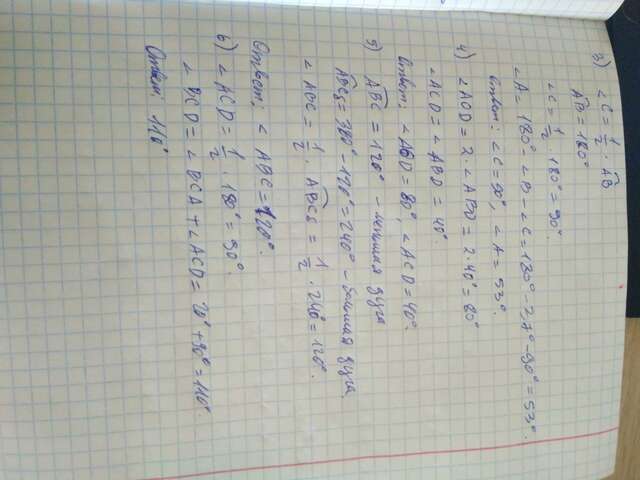 3) ∠C = 1/2 · A͡B
A͡B = 180°
∠C = 1/2 · 180° = 90°.
∠A = 180° - ∠B - ∠C = 180° - 37° - 90° = 53°.
Ответ: ∠C = 90°, ∠A = 53°.
4) ∠AOD = 2 · ∠ABD = 2 · 40° = 80°
∠ACD = ∠ABD = 40°.
Ответ: ∠AOD = 80°, ∠ACD = 40°.
5) A͡BC = 120° - меньшая дуга
A͡BCб = 360° - 120° = 240° - большая дуга
∠ABC = 1/2 · A͡BCб = 1/2 · 240° = 120°.
Ответ: ∠ABC = 120°.
6) ∠ACD = 1/2 · 180° = 90°.
∠BCD = ∠BCA + ∠ACD = 20° + 90° = 110°.
Ответ: 110°